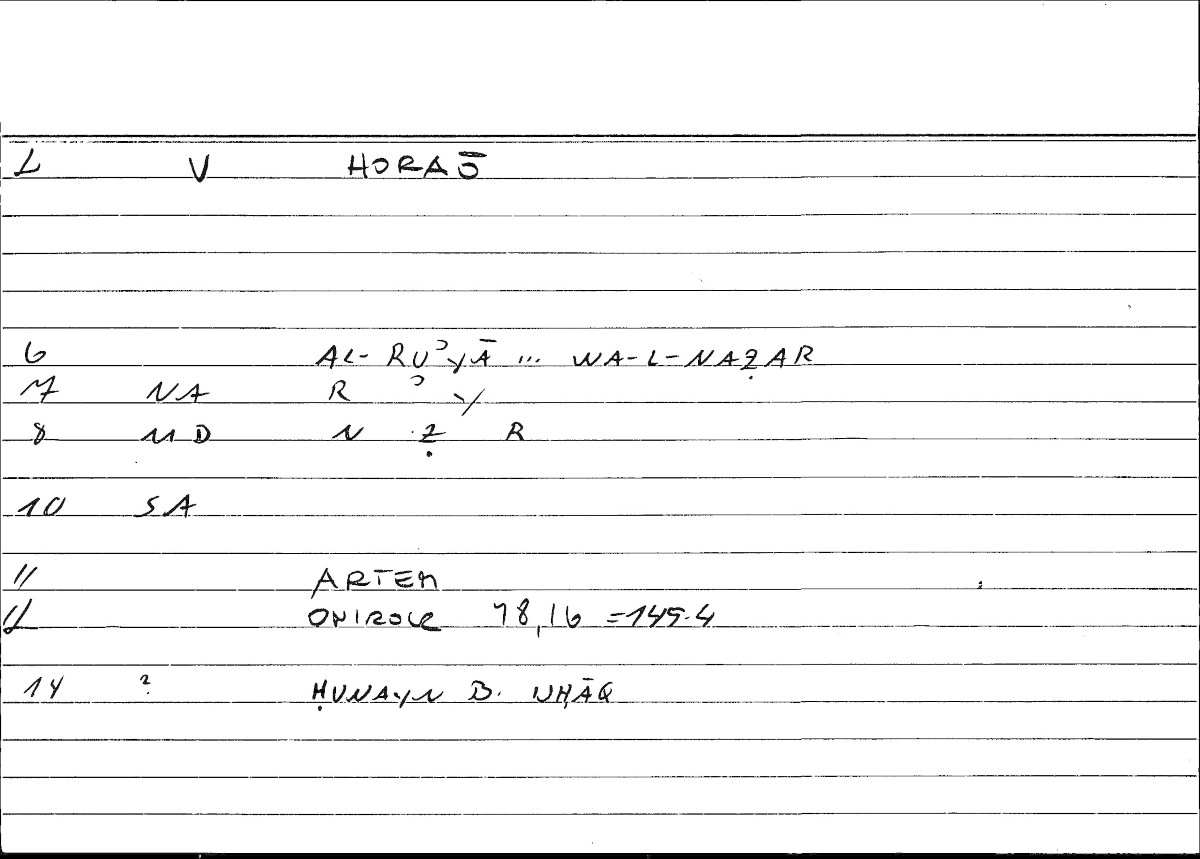 L V HORAŌ
6 AL-RUʾYĀ ... WA-L-NAẒAR
7 NA R ʾ Y
8 MD N Ẓ R
10 SA
11 ARTEM
ONIROCR 78,16 =145.4
14 ? ḤUNAYN B. ISḤĀQ